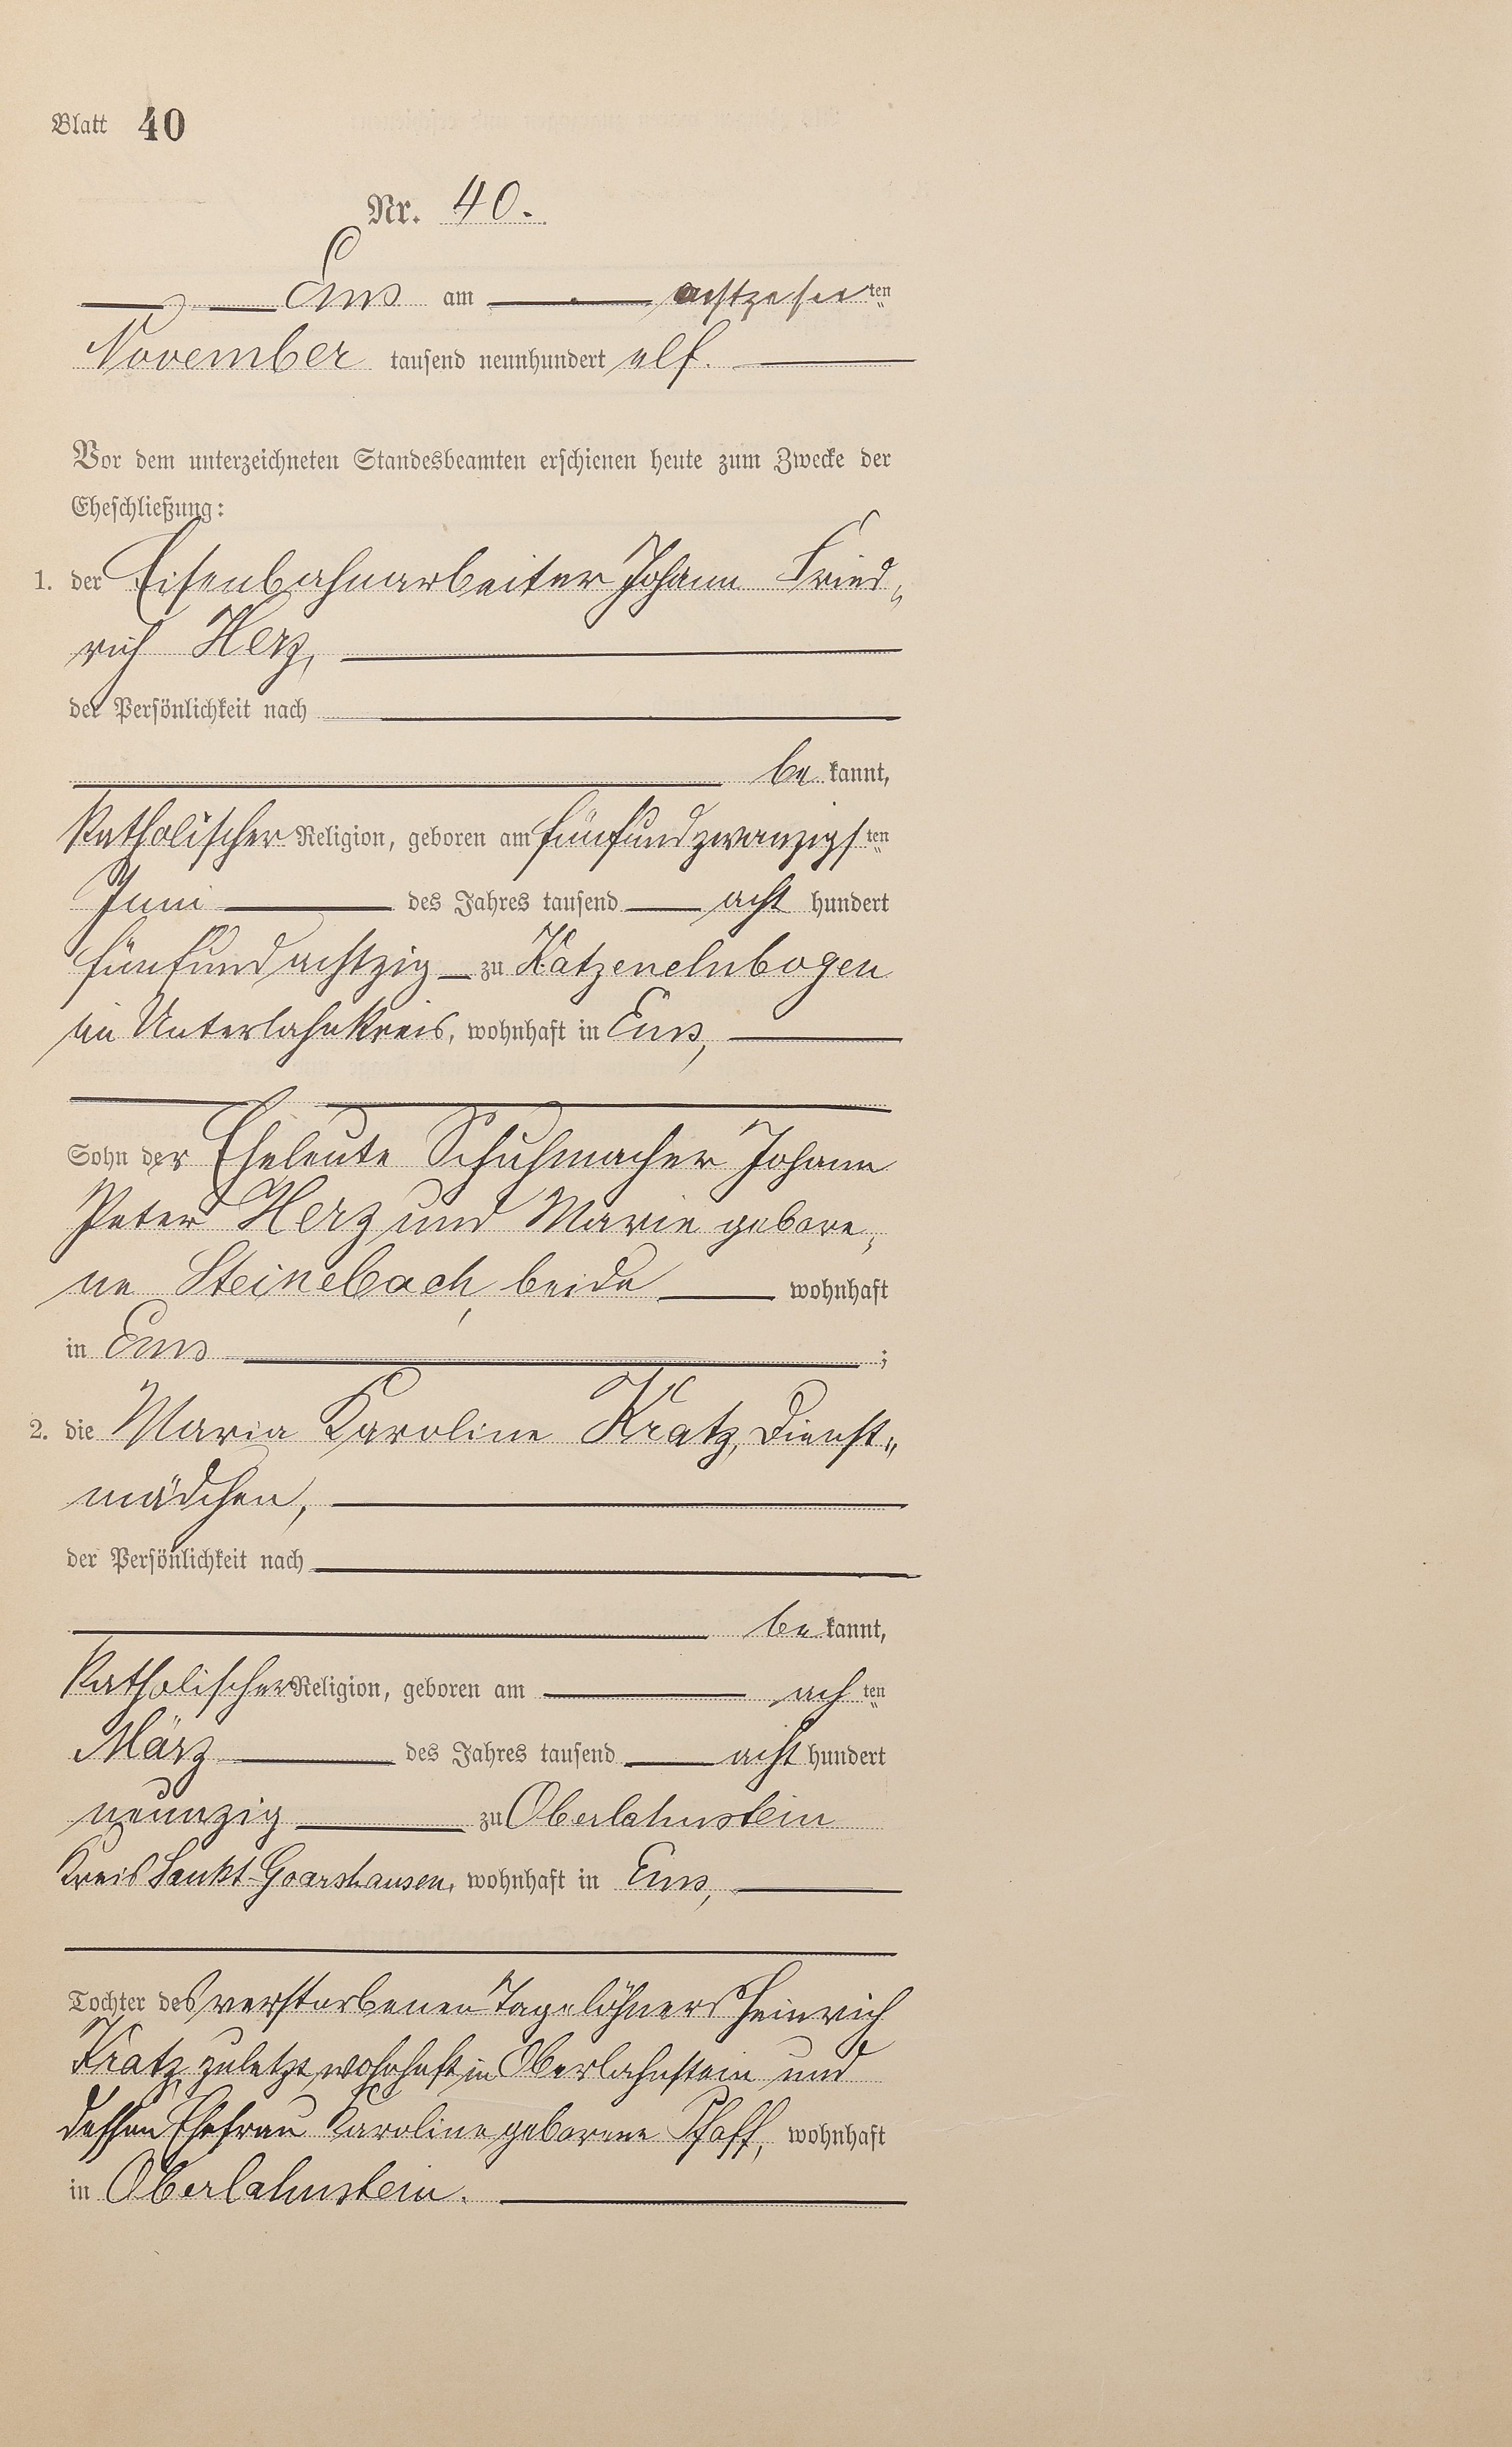 Blatt 40
Nr. 40.
Ems am achtzehnten
November tausend neunhundert elf.
Vor dem unterzeichneten Standesbeamten erschienen heute zum Zwecke der
Eheschließung:
1. der Eisenbahnarbeiter Johann Fried„
rich Herz,
der Persönlichkeit nach
be kannt,
katholischer Religion, geboren am fünfundzwanzigsten
Juni des Jahres tausend acht hundert
fünfundachtzig zu Katzenelnbogen
im Unterlahnkreis, wohnhaft in Ems,
Sohn der Eheleute Schuhmacher Johann
Peter Herz und Marie gebore„
ne Steinebach, beide wohnhaft
in Ems ;
2. die Maria Karoline Kratz, Dienst„
mädchen,
der Persönlichkeit nach
be kannt,
katholischer Religion, geboren am achten
März des Jahres tausend acht hundert
neunzig zu Oberlahnstein
Kreis Sankt-Goarshausen, wohnhaft in Ems,
Tochter des verstorbenen Tagelöhners Heinrich
Kratz, zuletzt wohnhaft in Oberlahnstein und
dessen Ehefrau Karoline geborene Pfaff, wohnhaft
in Oberlahnstein.